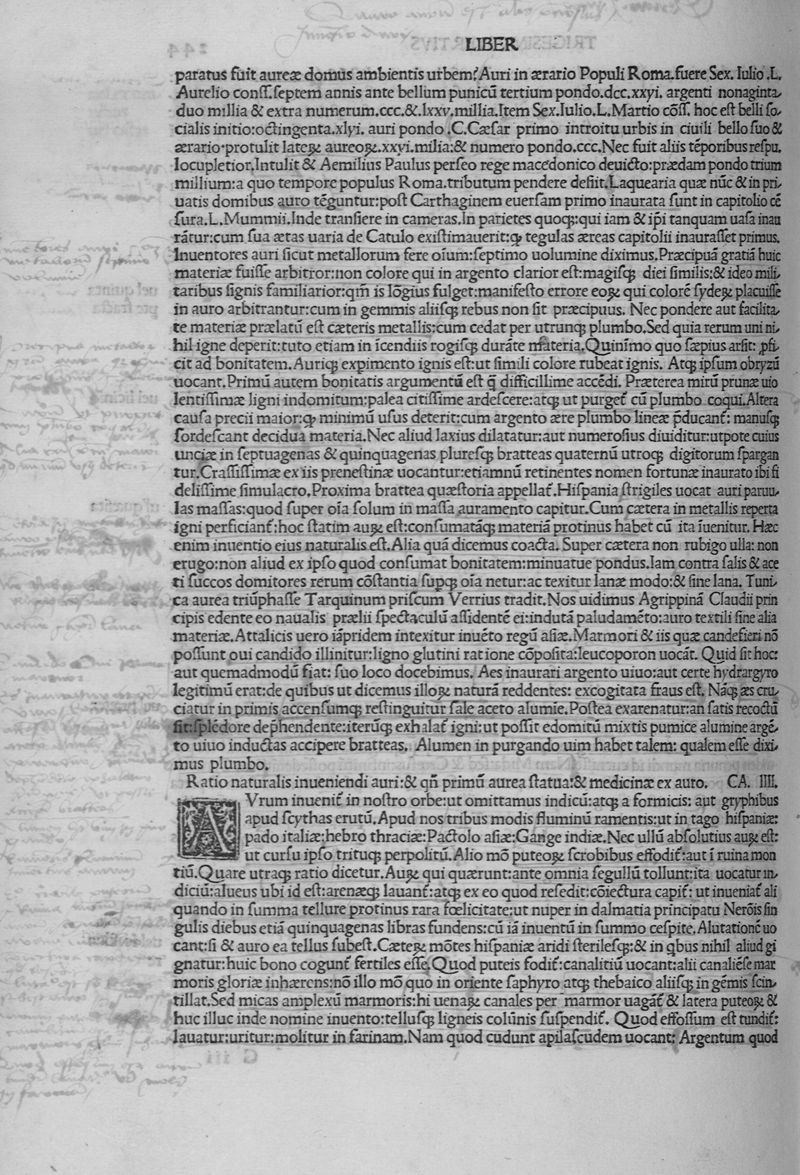 LIBER
paratus fuit aureæ domus ambientis urbem? Auri in ærario Populi Roma.fuere Sex. Iulio .L.
Aurelio conſſ.ſeptem annis ante bellum punicū tertium pondo.dcc.xxyi. argenti nonaginta
duo millia & extra numerum.ccc.&.lxxv.millia.Item Sex.Iulio.L.Martio cōſſ. hoc eſt belli ſo/
cialis initio:octingenta.xlyi. auri pondo .C.Cæſar primo introitu urbis in ciuili bello ſuo &
ærario protulit lateꝝ aureoꝝ.xxvi.milia:& numero pondo.ccc.Nec fuit aliis tēporibus reſpu.
locupletior.Intulit & Aemilius Paulus perſeo rege macedonico deuicto:prædam pondo trium
millium:a quo tempore populus Roma.tributum pendere deſiit.Laquearia quæ nūc & in pri
uatis domibus auro tēguntur:poſt Carthaginem euerſam primo inaurata ſunt in capitolio cē
ſura.L.Mummii.Inde tranſiere in cameras.In parietes quoqꝫ:qui iam & ip̄i tanquam uaſa inau
rātur:cum ſua ætas uaria de Catulo exiſtimauerit:ꝙ tegulas æreas capitolii inauraſſet primus.
Inuentores auri ſicut metallorum fere oīum:ſeptimo uolumine diximus.Præcipuā gratiā huic
materiæ fuiſſe arbitror:non colore qui in argento clarior eſt:magiſqꝫ diei ſimilis:& ideo mili/
taribus ſignis familiarior:qm̄ is lōgius fulget:manifeſto errore eoꝝ qui colorē ſydeꝝ placuiſſe
in auro arbitrantur:cum in gemmis aliiſqꝫ rebus non ſit præcipuus. Nec pondere aut facilita/
te materiæ prælatū eſt cæteris metallis:cum cedat per utrunqꝫ plumbo.Sed quia rerum uni ni/
hil igne deperit:tuto etiam in īcendiis rogiſqꝫ durāte materia.Quinīmo quo ſæpius arſit: ꝓfi/
cit ad bonitatem.Auriqꝫ expimento ignis eſt:ut ſimili colore rubeat ignis. Atqꝫ ipſum obryzū
uocant.Primū autem bonitatis argumentū eſt q̄ difficillime accēdi. Præterea mirū prunæ uio
lentiſſimæ ligni indomitum:palea citiſſime ardeſcere:atqꝫ ut purgeť cū plumbo coqui.Altera
cauſa precii maior:ꝙ minimū uſus deterit:cum argento ære plumbo lineæ p̄ducanť: manuſqꝫ
ſordeſcant decidua materia.Nec aliud laxius dilatatur:aut numeroſius diuiditur:utpote cuius
unciæ in ſeptuagenas & quinquagenas plureſqꝫ bratteas quaternū utroqꝫ digitorum ſpargan
tur.Craſſiſſimæ ex iis preneſtinæ uocantur:etiamnū retinentes nomen fortunæ inaurato ibi fi
deliſſime ſimulacro.Proxima brattea quæſtoria appellať.Hiſpania ſtrigiles uocat auri paruu/
las maſſas:quod ſuper oīa ſolum in maſſa aut ramento capitur.Cum cætera in metallis reperta
igni perficianť:hoc ſtatim auꝝ eſt:conſumatāqꝫ materiā protinus habet cū ita īuenitur. Hæc
enim inuentio eius naturalis eſt.Alia quā dicemus coacta. Super cætera non rubigo ulla: non
erugo:non aliud ex ipſo quod conſumat bonitatem:minuatue pondus.Iam contra ſalis & ace
ti ſuccos domitores rerum cōſtantia ſupqꝫ oīa netur:ac texitur lanæ modo:& ſine lana. Tuni/
ca aurea triūphaſſe Tarquinum priſcum Verrius tradit.Nos uidimus Agrippinā Claudii prin
cipis edente eo naualis prælii ſpectaculū aſſidentē ei:indutā paludamēto:auro textili ſine alia
materiæ.Attalicis uero iāpridem intexitur inuēto regū aſiæ.Marmori & iis quæ candefieri nō
poſſunt oui candido illinitur:ligno glutini ratione cōpoſita:leucoporon uocāt. Quid ſit hoc:
aut quemadmodū fiat: ſuo loco docebimus. Aes inaurari argento uiuo:aut certe hydrargyro
legitimū erat:de quibus ut dicemus illoꝝ naturā reddentes: excogitata fraus eſt. Nāqꝫ æs cru/
ciatur in primis accenſumqꝫ reſtinguitur ſale aceto alumie.Poſtea exarenatur:an ſatis recoctū
ſit:ſplēdore dep̄hendente:iterūqꝫ exhalať igni:ut poſſit edomitū mixtis pumice alumine argē/
to uiuo inductas accipere bratteas. Alumen in purgando uim habet talem: qualem eſſe dixi/
mus plumbo.
Ratio naturalis inueniendi auri:& qn̄ primū aurea ſtatua:& medicinæ ex auto. CA. IIII.
AVrum inueniť in noſtro orbe:ut omittamus indicū:atqꝫ a formicis: aut gryphibus
apud ſcythas erutū.Apud nos tribus modis fluminū ramentis:ut in tago hiſpaniæ:
pado italiæ:hebro thraciæ:Pactolo aſiæ:Gange indiæ.Nec ullū abſolutius auꝝ eſt:
ut curſu ipſo trituqꝫ perpolitū.Alio mō puteoꝝ ſcrobibus effodiť:aut ī ruina mon
tiū.Quare utraqꝫ ratio dicetur.Auꝝ qui quærunt:ante omnia ſegullū tollunt:ita uocatur in/
diciū:alueus ubi id eſt:arenæqꝫ lauanť:atqꝫ ex eo quod reſedit:cōiectura capiť: ut inueniať ali
quando in ſumma tellure protinus rara fœlicitate:ut nuper in dalmatia principatu Nerōis ſin
gulis diebus etiā quinquagenas libras fundens:cū iā inuentū in ſummo ceſpite.Alutationē uo
cant:ſi & auro ea tellus ſubeſt.Cæteꝝ mōtes hiſpaniæ aridi ſterileſqꝫ:& in qbus nihil aliud gi
gnatur:huic bono coguntˀ fertiles eſſe.Quod puteis fodiť:canalitiū uocant:alii canaliēſe mar
moris gloriæ inhærens:nō illo mō quo in oriente ſaphyro atqꝫ thebaico aliiſqꝫ in gēmis ſcin/
tillat.Sed micas amplexū marmoris:hi uenaꝝ canales per marmor uagāť & latera puteoꝝ &
huc illuc inde nomine inuento:telluſqꝫ ligneis colūnis ſuſpendiť. Quod effoſſum eſt tundiť:
lauatur:uritur:molitur in farinam.Nam quod cudunt apilaſcudem uocant: Argentum quod